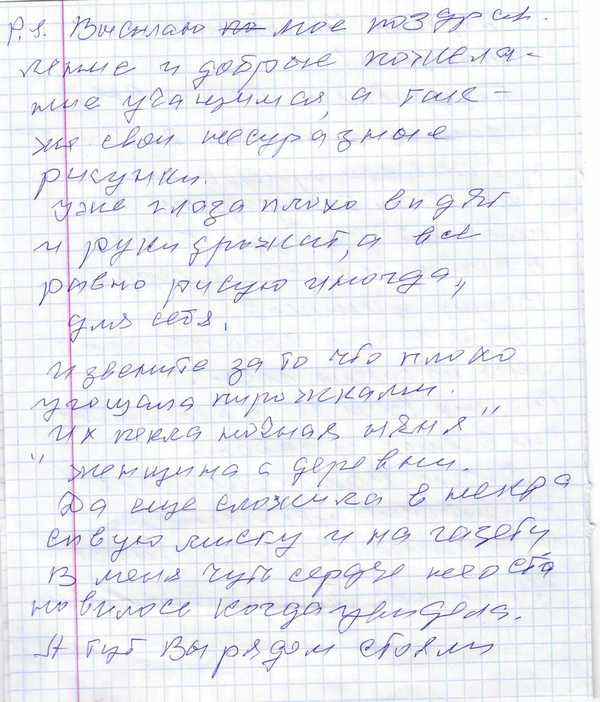 P.S. Высылаю по мое поздрав.
ление и доброе пожела-
ние учащимся, а так-
же свои несуразные
рисунки.
Уже глаза плохо видят
и руки дрожат, а все
равно рисую иногда,
для себя.
Извените за то что плохо
угощала пирожками.
Их пекла ночная няня"
" женщина с деревни.
Да еще сложила в некра
сивую миску и на газету
В меня чуть сердце не оста
новилось когда увидела.
А тут Вы рядом стояли